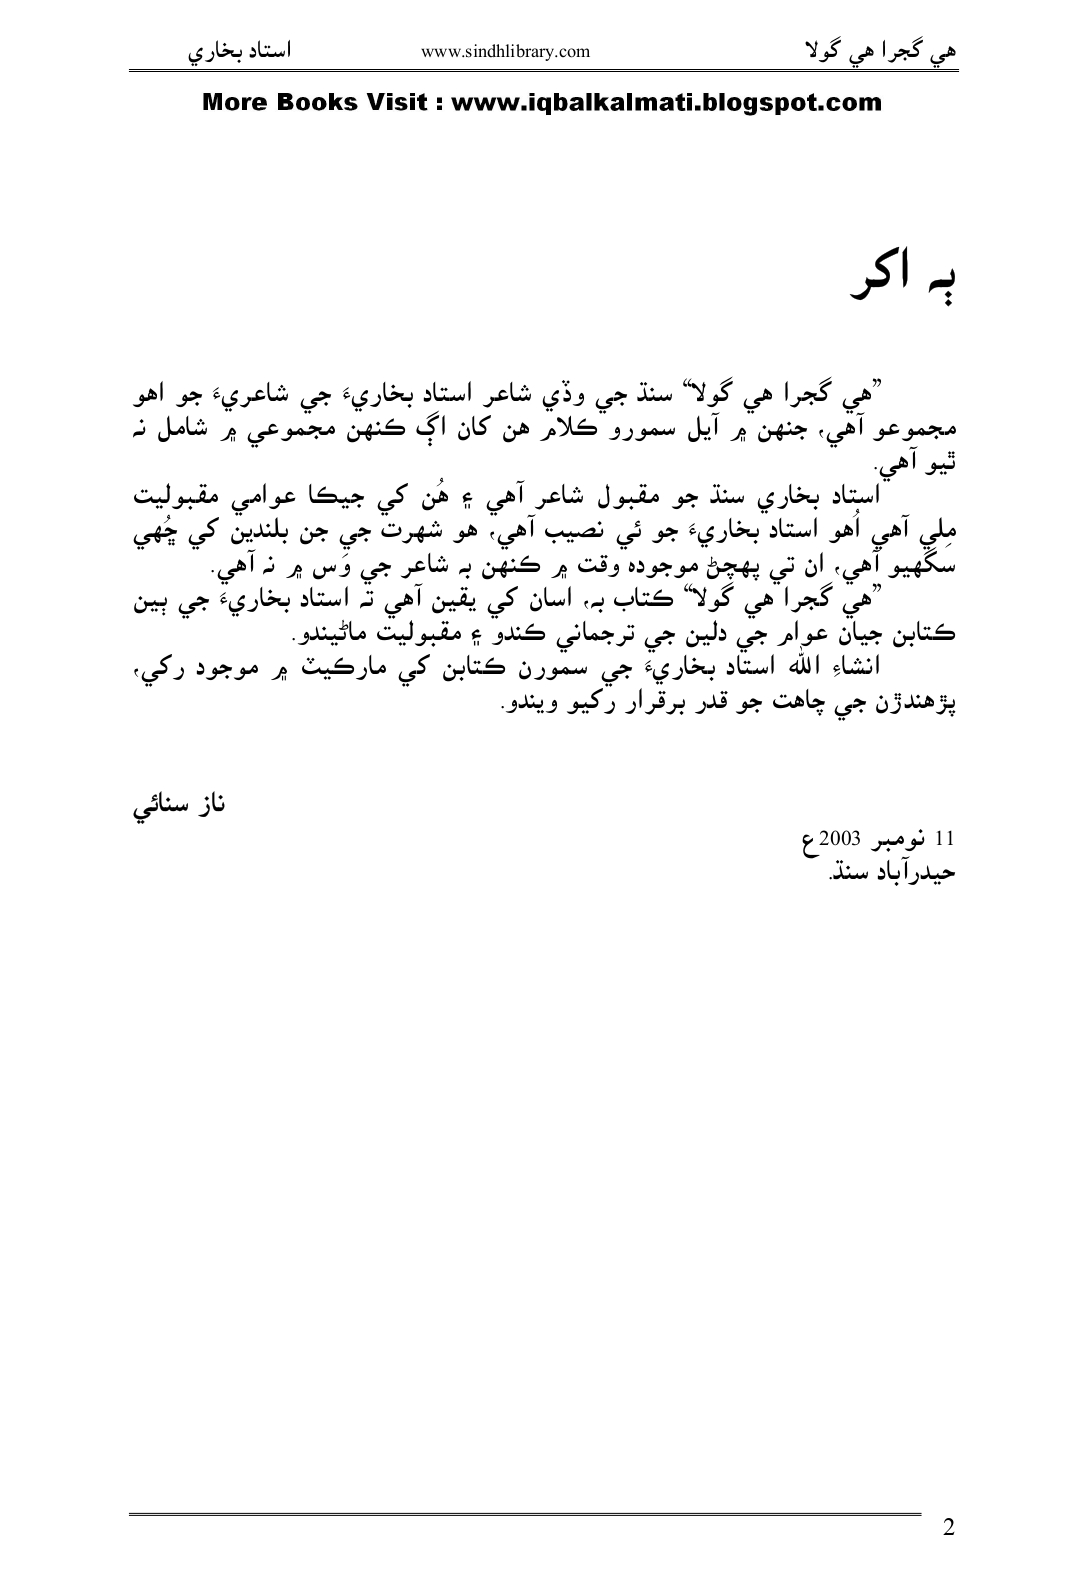 هي گجرا هي گولا www.sindhlibrary.com استاد بخاري
More Books Visit : www.iqbalkalmati.blogspot.com
ٻه اکر
”هي گجرا هي گولا“ سنڌ جي وڏي شاعر استاد بخاريءَ جي شاعريءَ جو اهو
مجموعو آهي، جنهن ۾ آيل سمورو ڪلام هن کان اڳ ڪنهن مجموعي ۾ شامل نه
ٿيو آهي.
استاد بخاري سنڌ جو مقبول شاعر آهي ۽ هُن کي جيڪا عوامي مقبوليت
مِلي آهي اُهو استاد بخاريءَ جو ئي نصيب آهي، هو شهرت جي جن بلندين کي ڇُهي
سگهيو آهي، ان تي پهچڻ موجوده وقت ۾ ڪنهن به شاعر جي وَس ۾ نه آهي.
”هي گجرا هي گولا“ ڪتاب به، اسان کي يقين آهي ته استاد بخاريءَ جي ٻين
ڪتابن جيان عوام جي دلين جي ترجماني ڪندو ۽ مقبوليت ماڻيندو.
انشاءِ الله استاد بخاريءَ جي سمورن ڪتابن کي مارڪيٽ ۾ موجود رکي،
پڙهندڙن جي چاهت جو قدر برقرار رکيو ويندو.
ناز سنائي
11 نومبر 2003ع
حيدرآباد سنڌ.
2